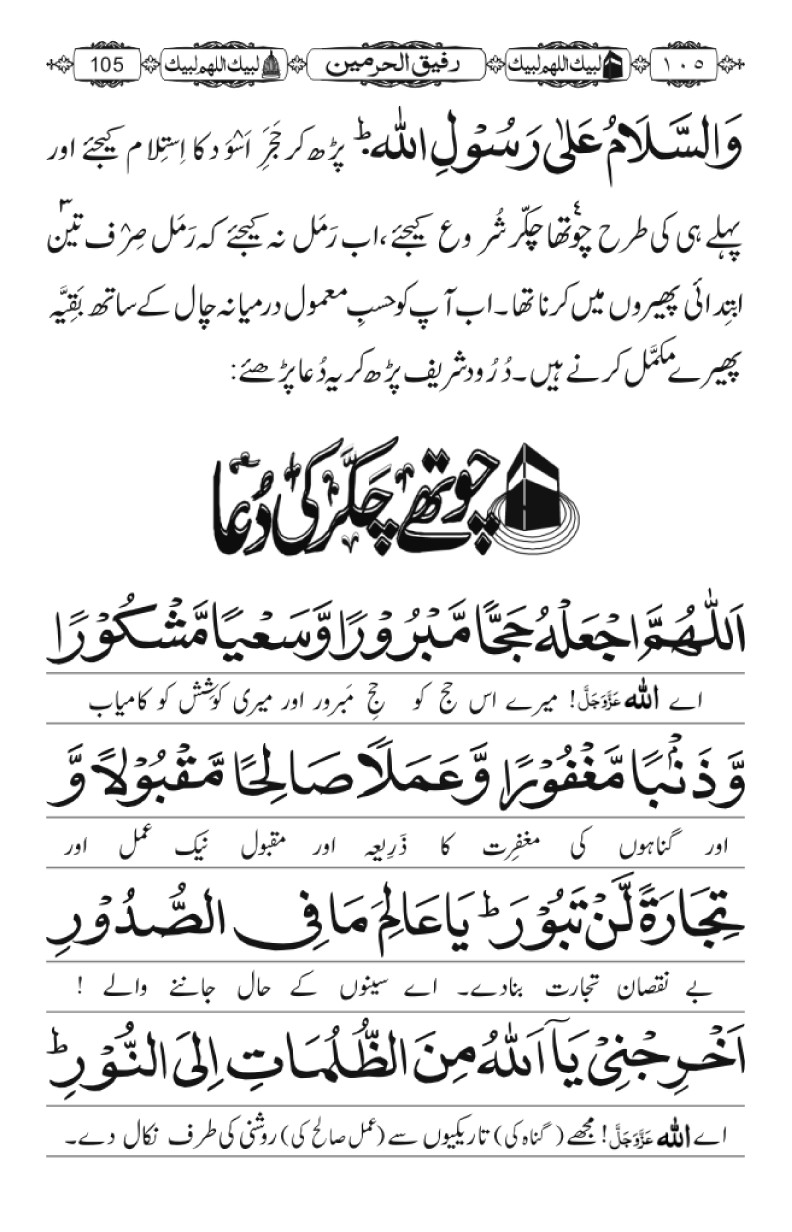 ١٠٥ لبيك اللهم لبيك رفیق الحرمین لبيك اللهم لبيك 105
وَالسَّلَامُ عَلٰی رَسُوْلِ اللّٰہِ ؕ پڑھ کر حَجَرِ اَسْوَد کا اِستِلام کیجئے اور
پہلے ہی کی طرح چوتھا۴ چکّر شُروع کیجئے،اب رَمَل نہ کیجئے کہ رَمَل صِرْف تین۳
ابتِدائی پھیروں میں کرنا تھا۔اب آپ کو حسبِ معمول درمیانہ چال کے ساتھ بَقِیَّہ
پھیرے مکمَّل کرنے ہیں۔دُرُود شریف پڑھ کر یہ دُعا پڑھئے:
چوتھے چکّر کی دُعا
اَللّٰهُمَّ اجْعَلْهُ حَجًّا مَّبْرُوْرًا وَّسَعْيًا مَّشْكُوْرًا
اے اللّٰہ عَزَّوَجَلَّ! میرے اس حج کو حجِ مَبرور اور میری کوشش کو کامیاب
وَّذَنْۢبًا مَّغْفُوْرًا وَّعَمَلًا صَالِحًا مَّقْبُوْلًا وَّ
اور گناہوں کی مغفِرت کا ذَرِیعہ اور مقبول نیک عمل اور
تِجَارَةً لَّنْ تَبُوْرَ ؕ يَا عَالِمَ مَا فِى الصُّدُوْرِ
بے نقصان تجارت بنادے۔ اے سینوں کے حال جاننے والے !
اَخْرِجْنِىْ يَآ اَللّٰهُ مِنَ الظُّلُمَاتِ اِلَى النُّوْرِ ؕ
اے اللّٰہ عَزَّوَجَلَّ! مجھے (گناہ کی) تاریکیوں سے (عمل صالح کی) روشنی کی طرف نکال دے۔